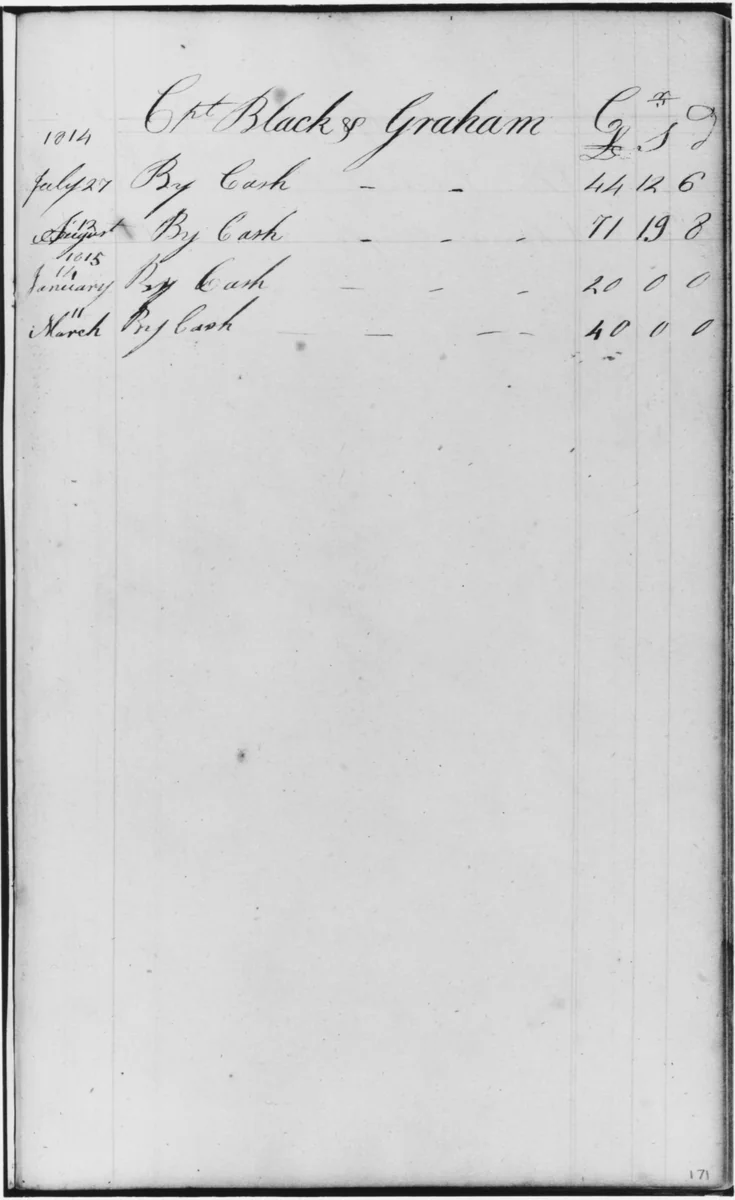 Cpt Black & Graham Cr
1814 £ S d
July 27 By Cash - - 44 12 6
August 13 By Cash - - - 71 19 8
1815
January 14 By Cash - - - 20 0 0
March 11 By Cash - - - 40 0 0
171